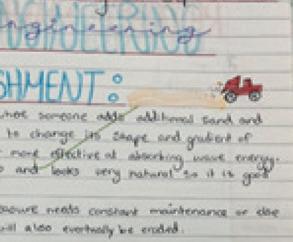 ENGINEERING
engineering
SHMENT:
where someone adds additional sand and
to change its shape and gradient of
more effective at absorbing wave energy.
and looks very natural so it is good
measure needs constant maintenance or else
will also eventually be eroded.